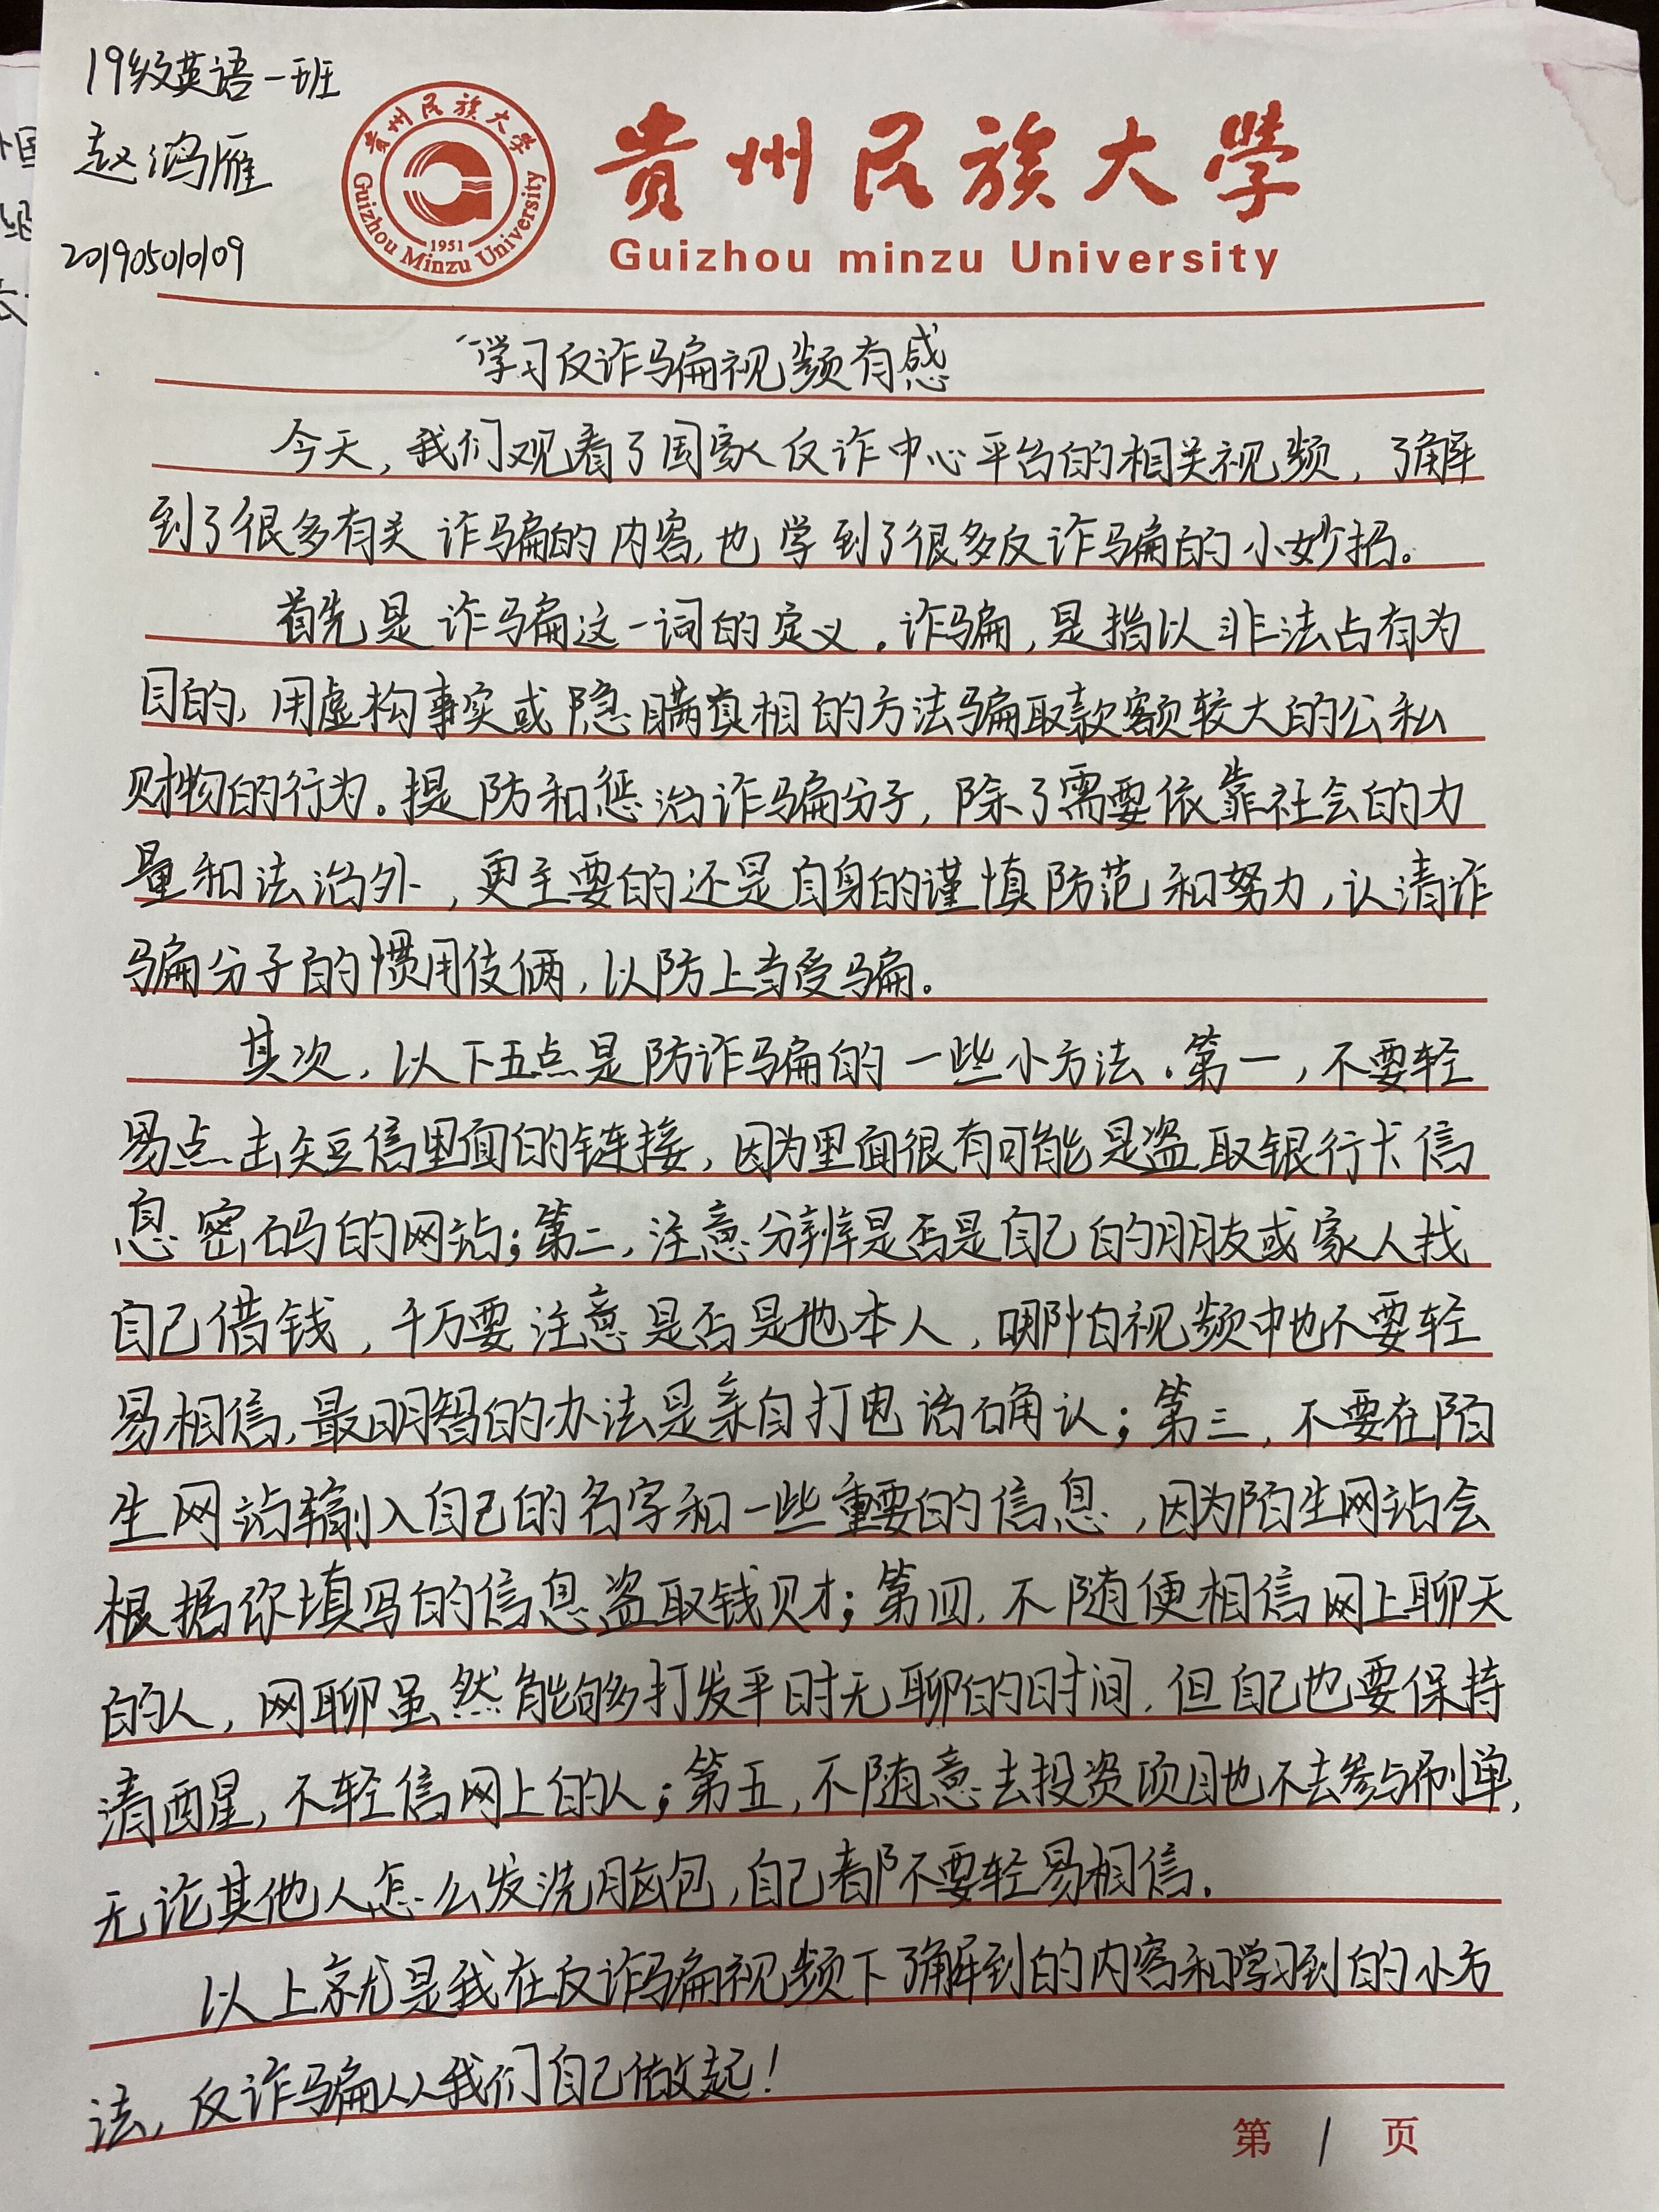 19级英语一班
赵鸿雁
201905010109
贵州民族大学
Guizhou Minzu University
1951
贵州民族大学
Guizhou minzu University
学习反诈骗视频有感
今天，我们观看了国家反诈中心平台的相关视频，了解
到了很多有关诈骗的内容，也学到了很多反诈骗的小妙招。
首先是诈骗这一词的定义。诈骗，是指以非法占有为
目的，用虚构事实或隐瞒真相的方法骗取款额较大的公私
财物的行为。提防和惩治诈骗分子，除了需要依靠社会的力
量和法治外，更主要的还是自身的谨慎防范和努力，认清诈
骗分子的惯用伎俩，以防上当受骗。
其次，以下五点是防诈骗的一些小方法。第一，不要轻
易点击短信里面的链接，因为里面很有可能是盗取银行卡信
息密码的网站；第二，注意分辨是否是自己的朋友或家人找
自己借钱，千万要注意是否是他本人，哪怕视频中也不要轻
易相信，最明智的办法是亲自打电话确认；第三，不要在陌
生网站输入自己的名字和一些重要的信息，因为陌生网站会
根据你填写的信息盗取钱财；第四，不随便相信网上聊天
的人，网聊虽然能够打发平时无聊的时间，但自己也要保持
清醒，不轻信网上的人；第五，不随意去投资项目也不去参与刷单，
无论其他人怎么发洗脑包，自己都不要轻易相信。
以上就是我在反诈骗视频下了解到的内容和学习到的小方
法，反诈骗从我们自己做起！
第 1 页